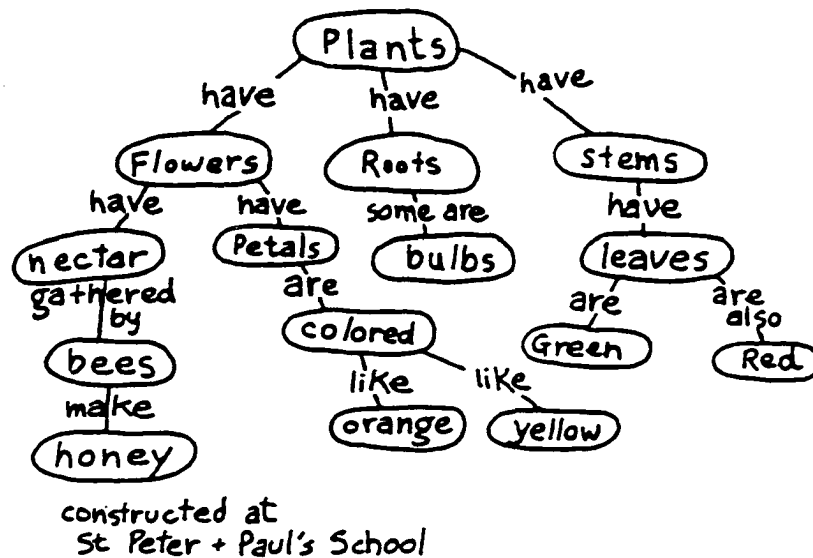 Plants
have have have
Flowers Roots stems
have have some are have
nectar Petals bulbs leaves
gathered by are are are also
bees colored Green Red
make like like
honey orange yellow
constructed at
St Peter + Paul's School